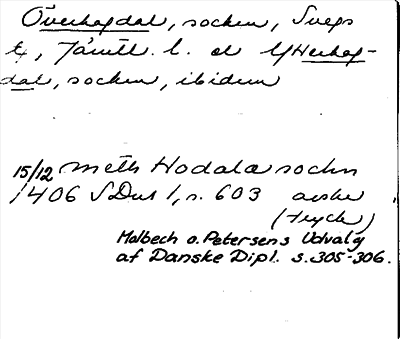 Överhogdal, socken, Svegs
t, Jämtl. l. o Ytterhog-
dal, socken, ibidem
15/12 meth Hodala sockn
1406 SDns 1, s. 603 avskr
(tryck)
Molbech o. Petersens Udvalg
af Danske Dipl. s. 305-306.